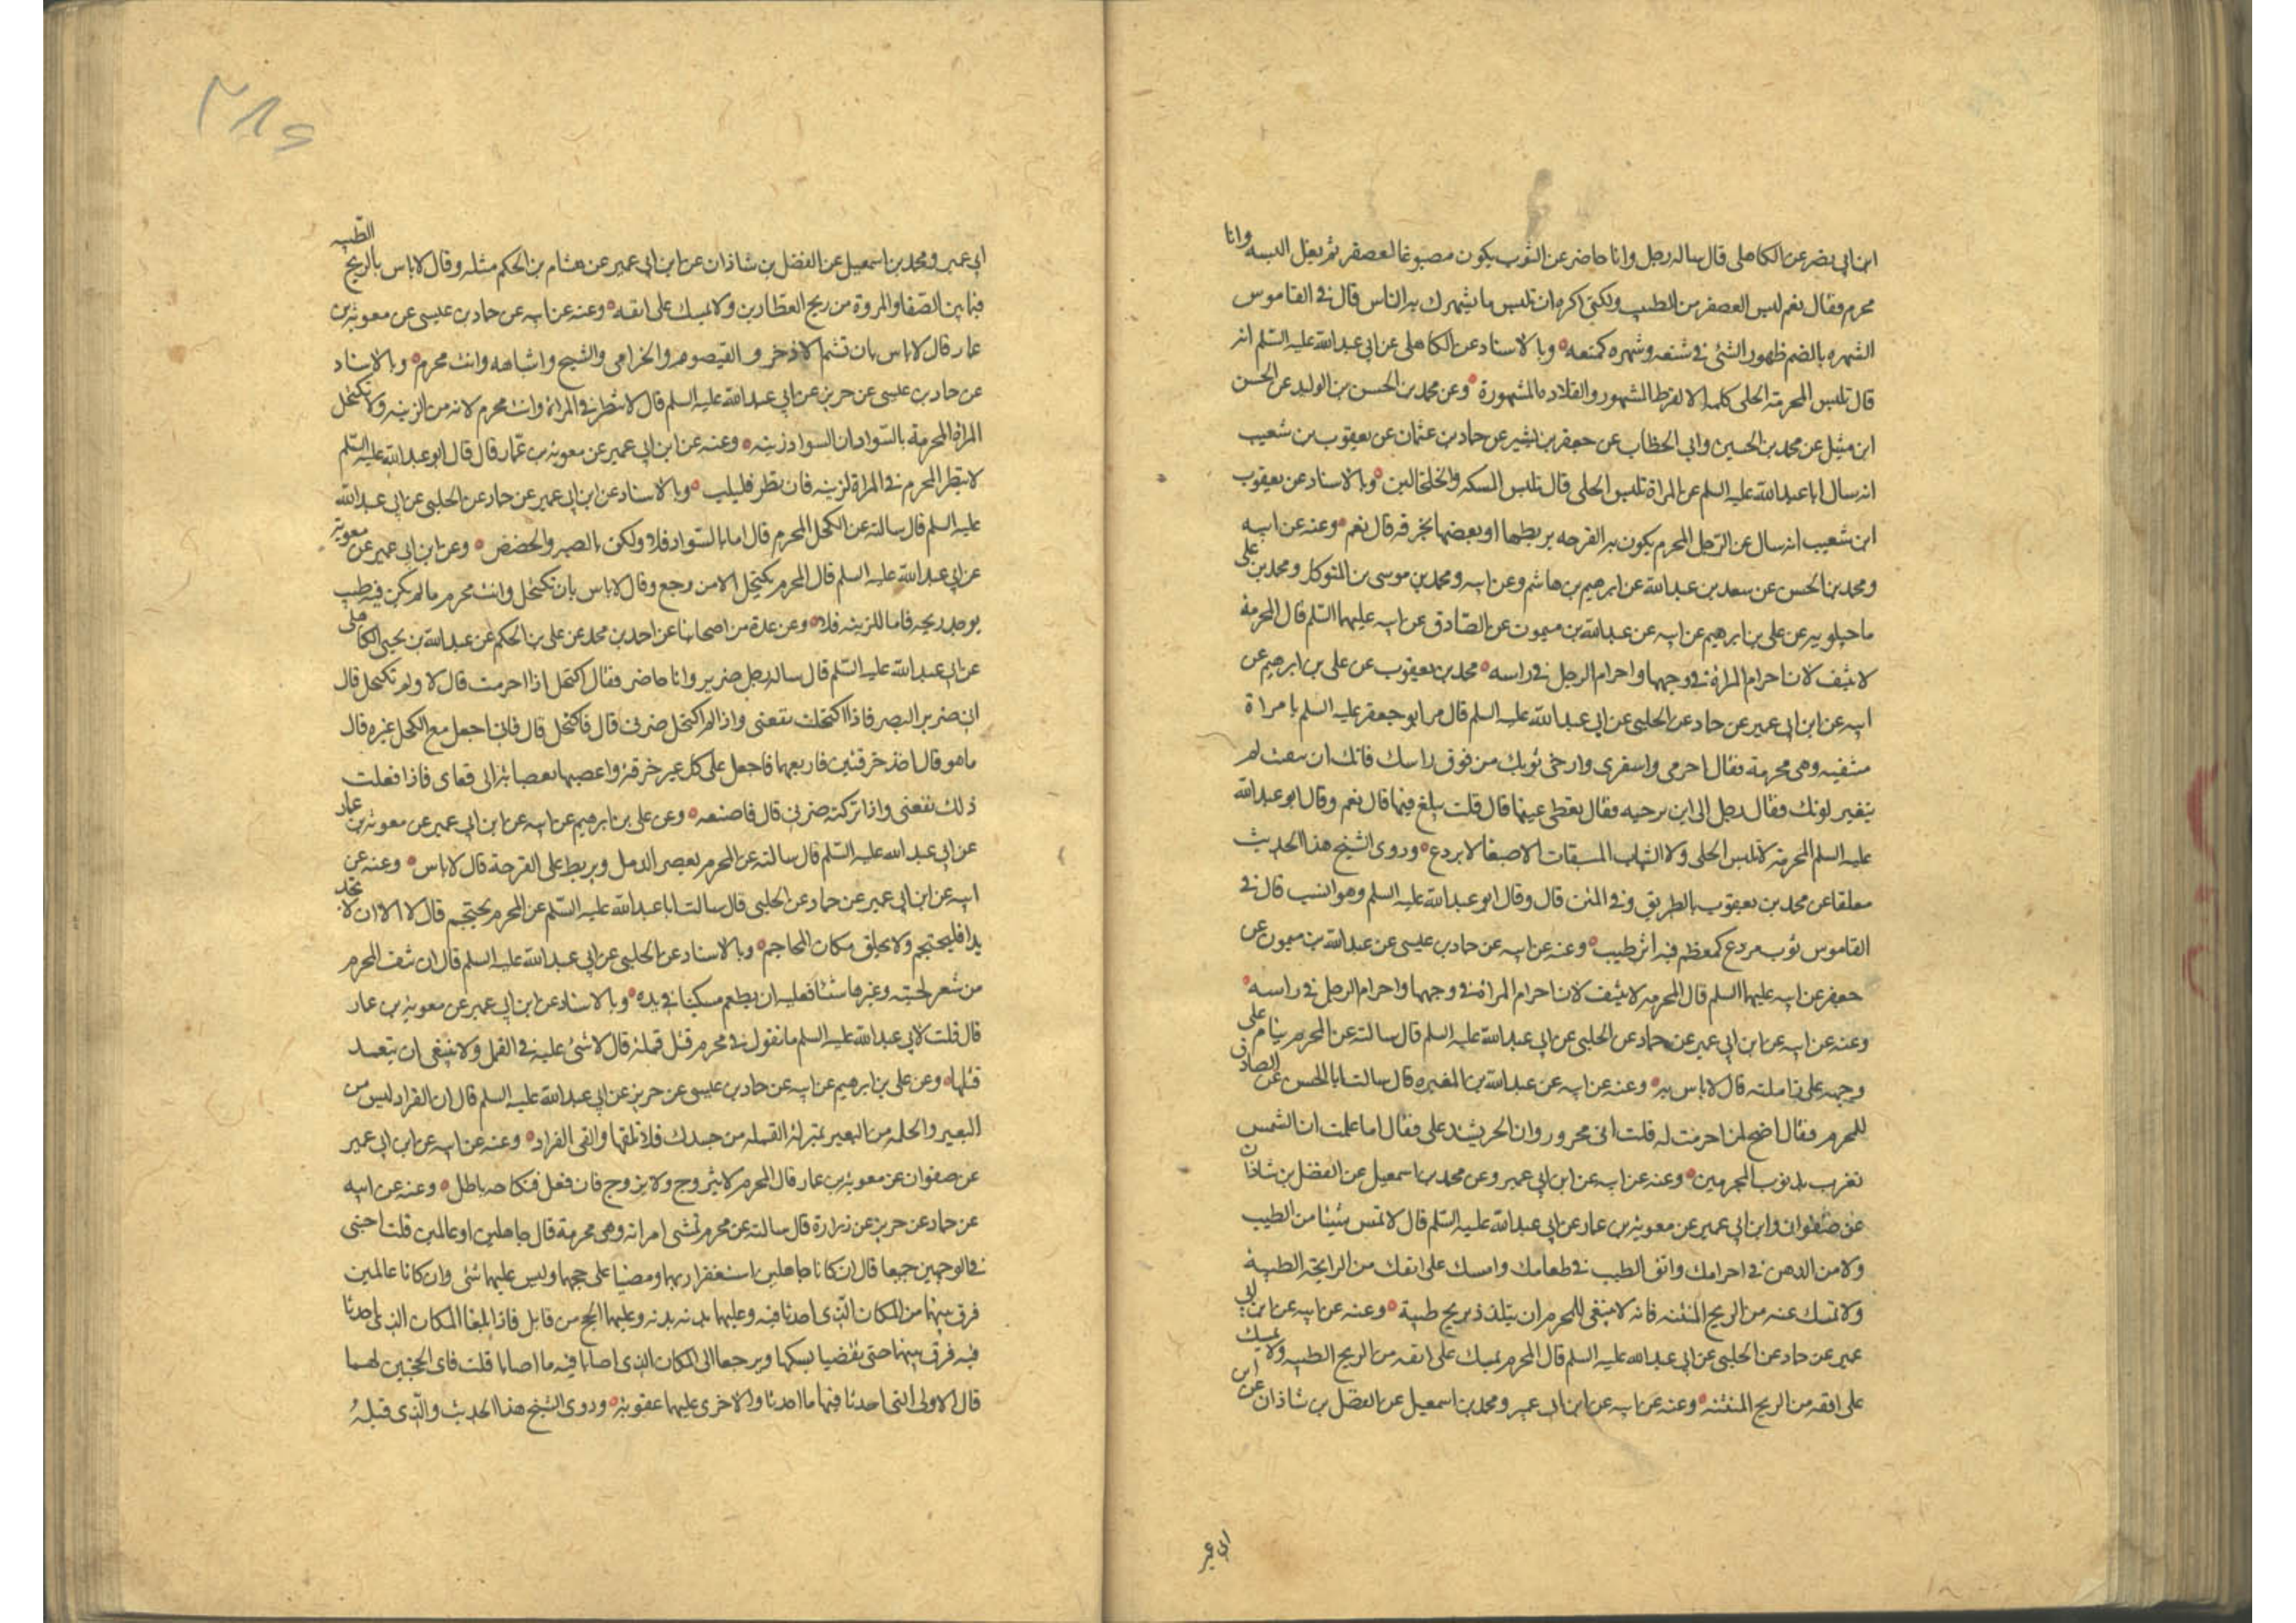 ابن ابي نصر عن الكاهلي قال ساله رجل وانا حاضر عن الثوب يكون مصبوغا بالعصفر ثم يغسل البسه وانا
محرم فقال نعم ليس العصفر من الطيب ولكني اكره ان تلبس ما يشهرك به الناس قال في القاموس
الشهره بالضم ظهور الشئ في شنعه وشهره كمنعه وبالاسناد عن الكاهلي عن ابي عبدالله عليه السلم انه
قال تلبس المحرمة الحلى كله الا القرط المشهور والقلادة المشهورة وعن محمد بن الحسن بن الوليد عن الحسن
ابن متيل عن محمد بن الحسين وابي الخطاب عن جعفر بن بشير عن حماد بن عثمان عن يعقوب بن شعيب
انه سال ابا عبدالله عليه السلم عن المراة تلبس الحلى قال تلبس المسكه والخلخالين وبالاسناد عن يعقوب
ابن شعيب انه سال عن الرجل المحرم يكون به القرحه يربطها او يعصبها بخرقه قال نعم وعنه عن ابيه
ومحمد بن الحسن عن سعد بن عبدالله عن ابرهيم بن هاشم وعن ابيه ومحمد بن موسى بن المتوكل ومحمد بن على
ماجيلويه عن على بن ابرهيم عن ابيه عن عبدالله بن ميمون عن الصادق عن ابيه عليهما السلم قال المحرمة
لا تتنقب لان احرام المراة في وجهها واحرام الرجل في راسه محمد بن يعقوب عن على بن ابرهيم عن
ابيه عن ابن ابي عمير عن حماد عن الحلبي عن ابي عبدالله عليه السلم قال مر ابو جعفر عليه السلم بامراة
متنقبه وهي محرمة فقال احرمي واسفري وارخي ثوبك من فوق راسك فانك ان تنقبت لم
يتغير لونك فقال رجل الى اين ترخيه فقال تغطى عينها قال قلت يبلغ فمها قال نعم وقال ابو عبدالله
عليه السلم المحرمة لا تلبس الحلى ولا الثياب المصبغات الا صبغا لا يردع وروى الشيخ هذا الحديث
معلقا عن محمد بن يعقوب بالطريق وفي المتن قال وقال ابو عبدالله عليه السلم وهو انسب قال في
القاموس ثوب مردع كمعظم فيه اثر طيب وعنه عن ابيه عن حماد بن عيسى عن عبدالله بن ميمون عن
جعفر عن ابيه عليهما السلم قال المحرمه لا تتنقب لان احرام المراة في وجهها واحرام الرجل في راسه
وعنه عن ابيه عن ابن ابي عمير عن حماد عن الحلبي عن ابي عبدالله عليه السلم قال سالته عن المحرم ينام على
وجهه على زاملته قال لا باس به وعنه عن ابيه عن عبدالله بن المغيره قال سالت ابا الحسن عن
للمحرم فقال اضح لمن احرمت له قلت اني محرور وان الحر يشتد على فقال اما علمت ان الشمس
تغرب بذنوب المجرمين وعنه عن ابيه عن ابن ابي عمير وعن محمد بن اسمعيل عن الفضل بن شاذان
عن صفوان وابن ابي عمير عن معوية بن عمار عن ابي عبدالله عليه السلم قال لا تمس شيئا من الطيب
ولا من الدهن في احرامك واتق الطيب في طعامك وامسك على انفك من الرايحة الطيبة
ولا تمسك عنه من الريح المنتنه فانه لا ينبغي للمحرم ان يتلذذ بريح طيبة وعنه عن ابيه عن ابن ابي
عمير عن حماد عن الحلبي عن ابي عبدالله عليه السلم قال المحرم يمسك على انفه من الريح الطيبه ولا يمسك
على انفه من الريح المنتنه وعنه عن ابيه عن ابن ابي عمير ومحمد بن اسمعيل عن الفضل بن شاذان عن ابن
ابي عمير
ابي عمير ومحمد بن اسمعيل عن الفضل بن شاذان عن ابن ابي عمير عن هشام بن الحكم مثله وقال لا باس بالريح الطيبه
فيما بين الصفا والمروة من ريح العطارين ولا يمسك على انفه وعنه عن ابيه عن حماد بن عيسى عن معوية بن
عمار قال لا باس بان تشم الاذخر والقيصوم والخزامى والشيح واشباهه وانت محرم وبالاسناد
عن حماد بن عيسى عن حريز عن ابي عبدالله عليه السلم قال لا تنظر في المراة وانت محرم لانه من الزينه ولا تكتحل
المراة المحرمة بالسواد ان السواد زينه وعنه عن ابن ابي عمير عن معوية بن عمار قال قال ابو عبدالله عليه السلم
لا ينظر المحرم في المراة لزينه فان نظر فليلب وبالاسناد عن ابن ابي عمير عن حماد عن الحلبي عن ابي عبدالله
عليه السلم قال سالته عن الكحل للمحرم قال اما بالسواد فلا ولكن بالصبر والحضض وعن ابن ابي عمير عن معوية
عن ابي عبدالله عليه السلم قال المحرم لا يكتحل الا من وجع وقال لا باس بان تكتحل وانت محرم ما لم يكن فيه طيب
يوجد ريحه فاما للزينه فلا وعن عدة من اصحابنا عن احمد بن محمد عن على بن الحكم عن عبدالله بن يحيى الكاهلي
عن ابي عبدالله عليه السلم قال ساله رجل ضرير وانا حاضر فقال اكتحل اذا احرمت قال لا ولم تكتحل قال
اني ضرير البصر فاذا اكتحلت نفعني واذا لم اكتحل ضرني قال فاكتحل قال فاني اجعل مع الكحل غيره قال
ما هو قال اخذ خرقتين فاربعهما فاجعل على كل عين خرقة واعصبهما بعصابة الى قفاي فاذا فعلت
ذلك نفعني واذا تركته ضرني قال فاصنعه وعن على بن ابرهيم عن ابيه عن ابن ابي عمير عن معوية بن عمار
عن ابي عبدالله عليه السلم قال سالته عن المحرم يعصر الدمل ويربط على القرحة قال لا باس وعنه عن
ابيه عن ابن ابي عمير عن حماد عن الحلبي قال سالت ابا عبدالله عليه السلم عن المحرم يحتجم قال لا الا ان لا يجد
بدا فليحتجم ولا يحلق مكان المحاجم وبالاسناد عن الحلبي عن ابي عبدالله عليه السلم قال ان نتف المحرم
من شعر لحيته وغيرها شيئا فعليه ان يطعم مسكينا في يده وبالاسناد عن ابن ابي عمير عن معوية بن عمار
قال قلت لابي عبدالله عليه السلم ما تقول في محرم قتل قملة قال لا شئ عليه في القمل ولا ينبغي ان يتعمد
قتلها وعن على بن ابرهيم عن ابيه عن حماد بن عيسى عن حريز عن ابي عبدالله عليه السلم قال ان القراد ليس من
البعير والحلمه من البعير بمنزلة القمله من جسدك فلا تلقها والق القراد وعنه عن ابيه عن ابن ابي عمير
عن صفوان عن معوية بن عمار قال المحرم لا يتزوج ولا يزوج فان فعل فنكاحه باطل وعنه عن ابيه
عن حماد عن حريز عن زرارة قال سالته عن محرم غشي امراته وهي محرمة قال جاهلين او عالمين قلت اجبني
في الوجهين جميعا قال ان كانا جاهلين استغفرا ربهما ومضيا على حجهما وليس عليهما شئ وان كانا عالمين
فرق بينهما من المكان الذي احدثا فيه وعليهما بدنه بدنه وعليهما الحج من قابل فاذا بلغا المكان الذي احدثا
فيه فرق بينهما حتى يقضيا نسكهما ويرجعا الى المكان الذي اصابا فيه ما اصابا قلت فاي الحجتين لهما
قال الاولى التي احدثا فيها ما احدثا والاخرى عليهما عقوبة وروى الشيخ هذا الحديث والذي قبله